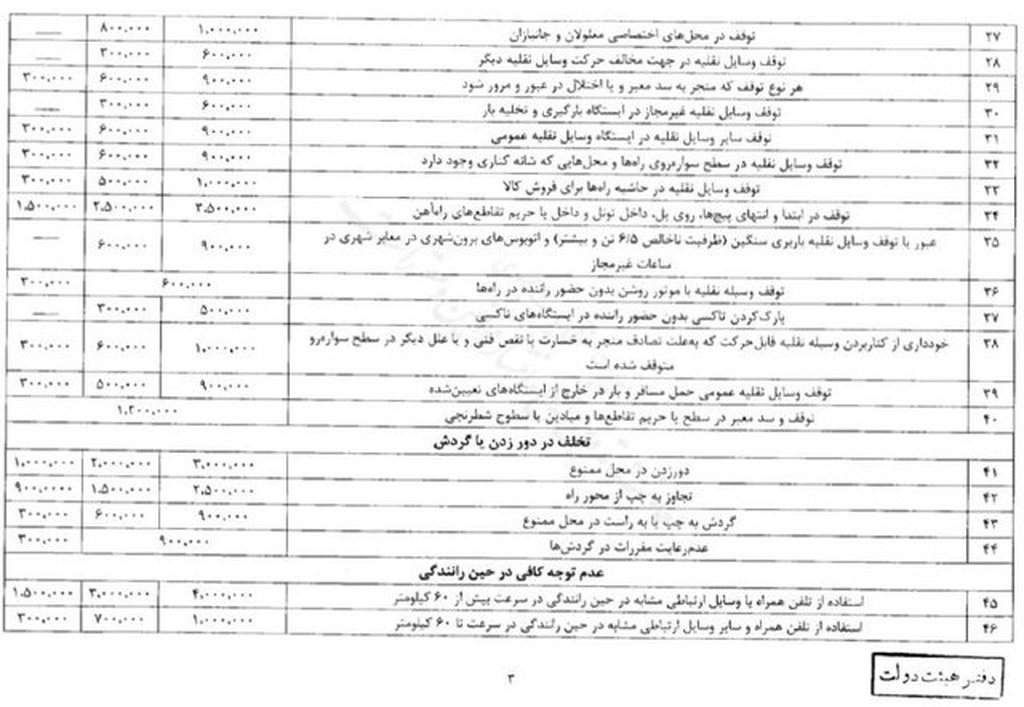 ۲۷ توقف در محل‌های اختصاصی معلولان و جانبازان ۱.۰۰۰.۰۰۰ ۸۰۰.۰۰۰ ــــ
۲۸ توقف وسایل نقلیه در جهت مخالف حرکت وسایل نقلیه دیگر ۶۰۰.۰۰۰ ۳۰۰.۰۰۰ ــــ
۲۹ هر نوع توقف که منجر به سد معبر و یا اختلال در عبور و مرور شود ۹۰۰.۰۰۰ ۶۰۰.۰۰۰ ۳۰۰.۰۰۰
۳۰ توقف وسایل نقلیه غیرمجاز در ایستگاه بارگیری و تخلیه بار ۶۰۰.۰۰۰ ۳۰۰.۰۰۰ ــــ
۳۱ توقف سایر وسایل نقلیه در ایستگاه وسایل نقلیه عمومی ۹۰۰.۰۰۰ ۶۰۰.۰۰۰ ۳۰۰.۰۰۰
۳۲ توقف وسایل نقلیه در سطح سواره‌روی راه‌ها و محل‌هایی که شانه کناری وجود دارد ۹۰۰.۰۰۰ ۶۰۰.۰۰۰ ۳۰۰.۰۰۰
۳۳ توقف وسایل نقلیه در حاشیه راه‌ها برای فروش کالا ۱.۰۰۰.۰۰۰ ۵۰۰.۰۰۰ ۳۰۰.۰۰۰
۳۴ توقف در ابتدا و انتهای پیچ‌ها، روی پل، داخل تونل و داخل یا حریم تقاطع‌های راه‌آهن ۳.۵۰۰.۰۰۰ ۲.۵۰۰.۰۰۰ ۱.۵۰۰.۰۰۰
۳۵ عبور یا توقف وسایل نقلیه باربری سنگین (ظرفیت ناخالص ۶/۵ تن و بیشتر) و اتوبوس‌های برون‌شهری در معابر شهری در ۹۰۰.۰۰۰ ۶۰۰.۰۰۰ ــــ
ساعات غیرمجاز
۳۶ توقف وسیله نقلیه با موتور روشن بدون حضور راننده در راه‌ها ۶۰۰.۰۰۰ ۳۰۰.۰۰۰
۳۷ پارک‌کردن تاکسی بدون حضور راننده در ایستگاه‌های تاکسی ۵۰۰.۰۰۰ ۳۰۰.۰۰۰ ــــ
۳۸ خودداری از کناربردن وسیله نقلیه قابل‌حرکت که به‌علت تصادف منجر به خسارت یا نقص فنی و یا علل دیگر در سطح سواره‌رو ۱.۰۰۰.۰۰۰ ۶۰۰.۰۰۰ ۳۰۰.۰۰۰
متوقف شده است
۳۹ توقف وسایل نقلیه عمومی حمل مسافر و بار در خارج از ایستگاه‌های تعیین‌شده ۹۰۰.۰۰۰ ۵۰۰.۰۰۰ ۳۰۰.۰۰۰
۴۰ توقف و سد معبر در سطح یا حریم تقاطع‌ها و میادین با سطوح شطرنجی ۱.۲۰۰.۰۰۰
تخلف در دور زدن یا گردش
۴۱ دورزدن در محل ممنوع ۳.۰۰۰.۰۰۰ ۲.۰۰۰.۰۰۰ ۱.۰۰۰.۰۰۰
۴۲ تجاوز به چپ از محور راه ۲.۵۰۰.۰۰۰ ۱.۵۰۰.۰۰۰ ۹۰۰.۰۰۰۰
۴۳ گردش به چپ یا به راست در محل ممنوع ۹۰۰.۰۰۰ ۶۰۰.۰۰۰ ۳۰۰.۰۰۰
۴۴ عدم‌رعایت مقررات در گردش‌ها ۹۰۰.۰۰۰ ۳۰۰.۰۰۰
عدم توجه کافی در حین رانندگی
۴۵ استفاده از تلفن همراه یا وسایل ارتباطی مشابه در حین رانندگی در سرعت بیش از ۶۰ کیلومتر ۴.۰۰۰.۰۰۰ ۳.۰۰۰.۰۰۰ ۱.۵۰۰.۰۰۰
۴۶ استفاده از تلفن همراه و سایر وسایل ارتباطی مشابه در حین رانندگی در سرعت تا ۶۰ کیلومتر ۱.۰۰۰.۰۰۰ ۷۰۰.۰۰۰ ۳۰۰.۰۰۰
۳
دفتر هیئت دولت